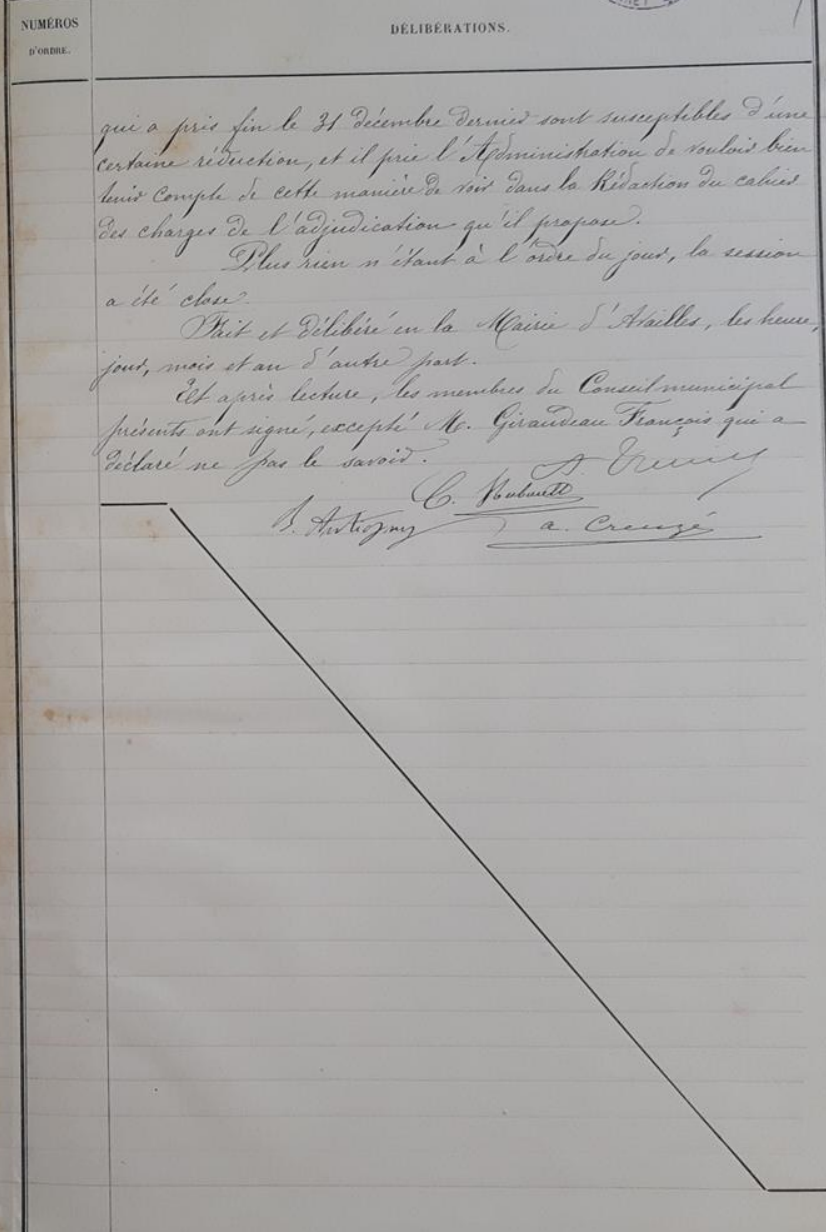 NUMÉROS
D'ORDRE.
DÉLIBÉRATIONS.
qui a pris fin le 31 décembre dernier sont susceptibles d'une
certaine réduction, et il prie l'Administration de vouloir bien
tenir compte de cette manière de voir dans la Rédaction du cahier
des charges de l'adjudication qu'il propose.
Plus rien n'étant à l'ordre du jour, la session
a été close.
Fait et délibéré en la Mairie d'Availles, les heure,
jour, mois et an d'autre part.
Et après lecture, les membres du Conseil municipal
présents ont signé, excepté M. Giraudeau François qui a
déclaré ne pas le savoir.
C.
B. Antigny
a. Creuzé